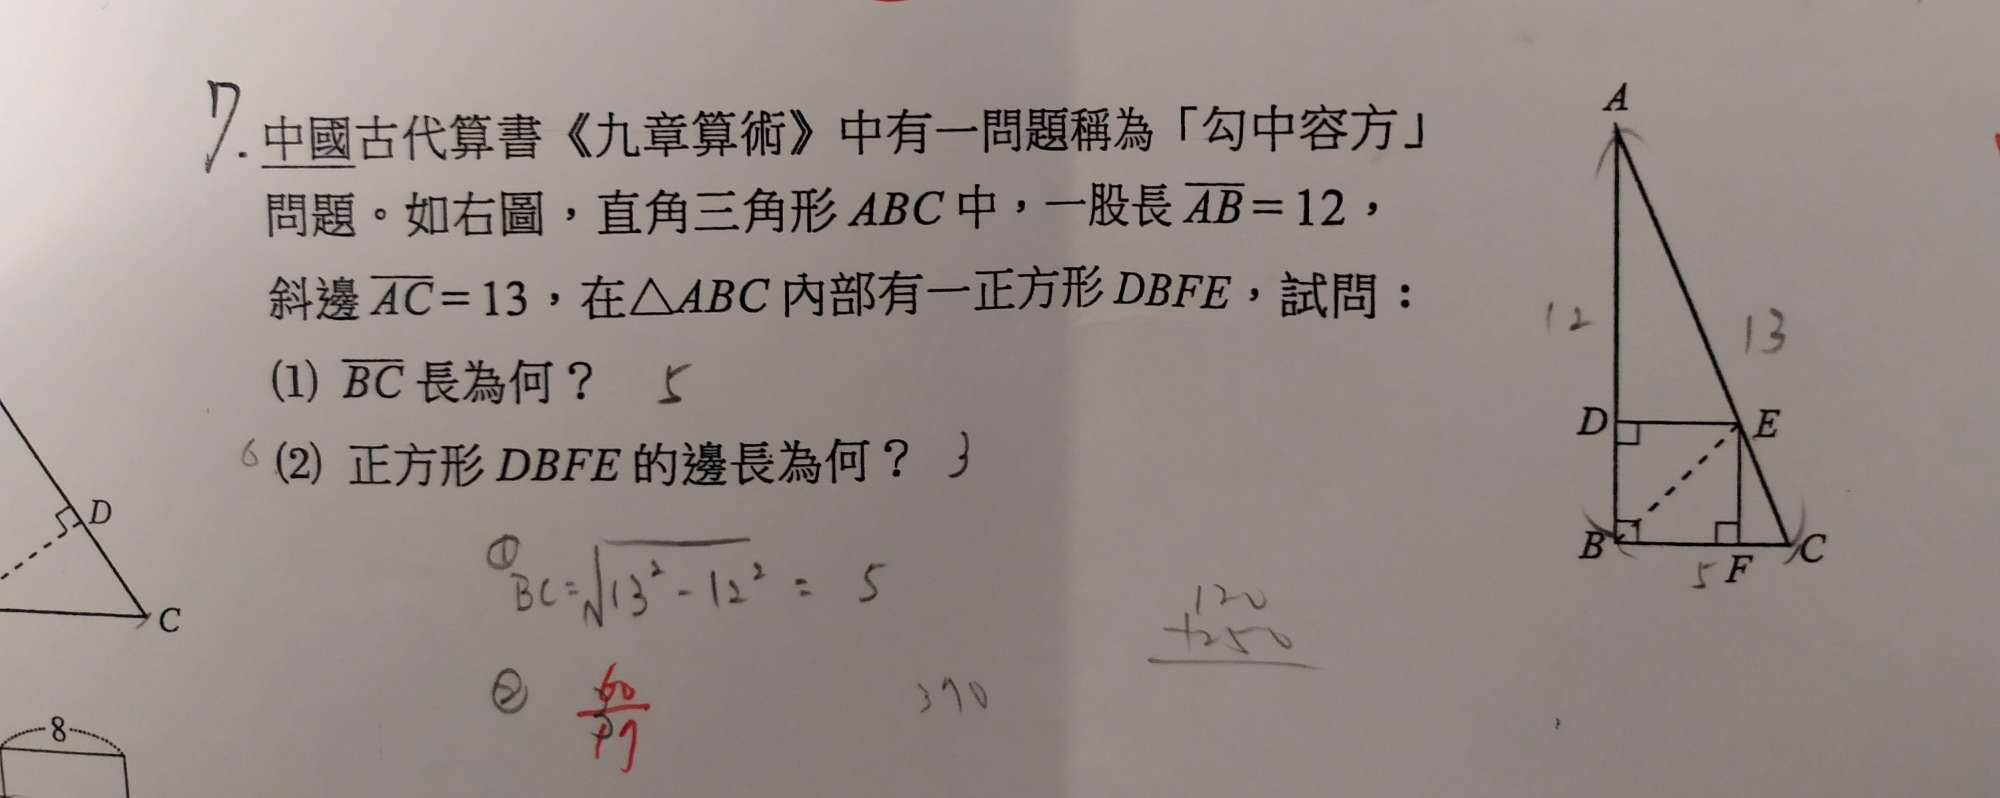 7. 中國古代算書《九章算術》中有一問題稱為「勾中容方」
問題。如右圖，直角三角形 ABC 中，一股長 AB = 12，
斜邊 AC = 13，在△ABC 內部有一正方形 DBFE，試問：
(1) BC 長為何？ 5
6 (2) 正方形 DBFE 的邊長為何？ 3
① BC = √13² - 12² = 5
② 60/17
370
120
+250
A
12
13
D
E
B
5
F
C
D
C
8